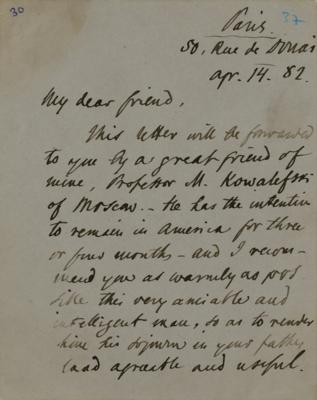 30
37
Paris.
50, Rue de Douai
Apr. 14. 82.
My dear friend,
This letter will be forwarded
to you by a great friend of
mine, Professor M. Kowalefski
of Moscow. - He has the intention
to remain in America for three
or four months - and I recom-
mend you as warmly as pos
sible this very amiable and
intelligent man, so as to render
him his sojourn in your father
land agreable and useful.